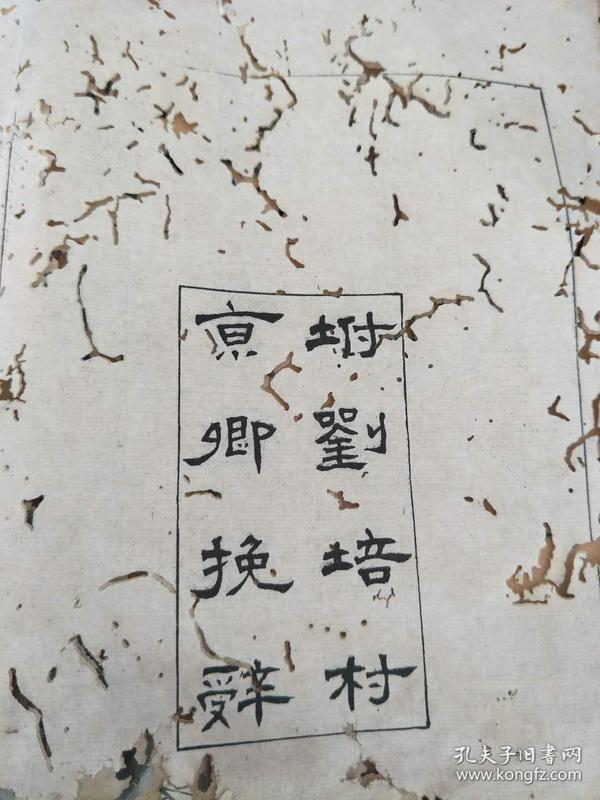 坿劉培村
亰卿挽辤
孔夫子旧书网
www.kongfz.com